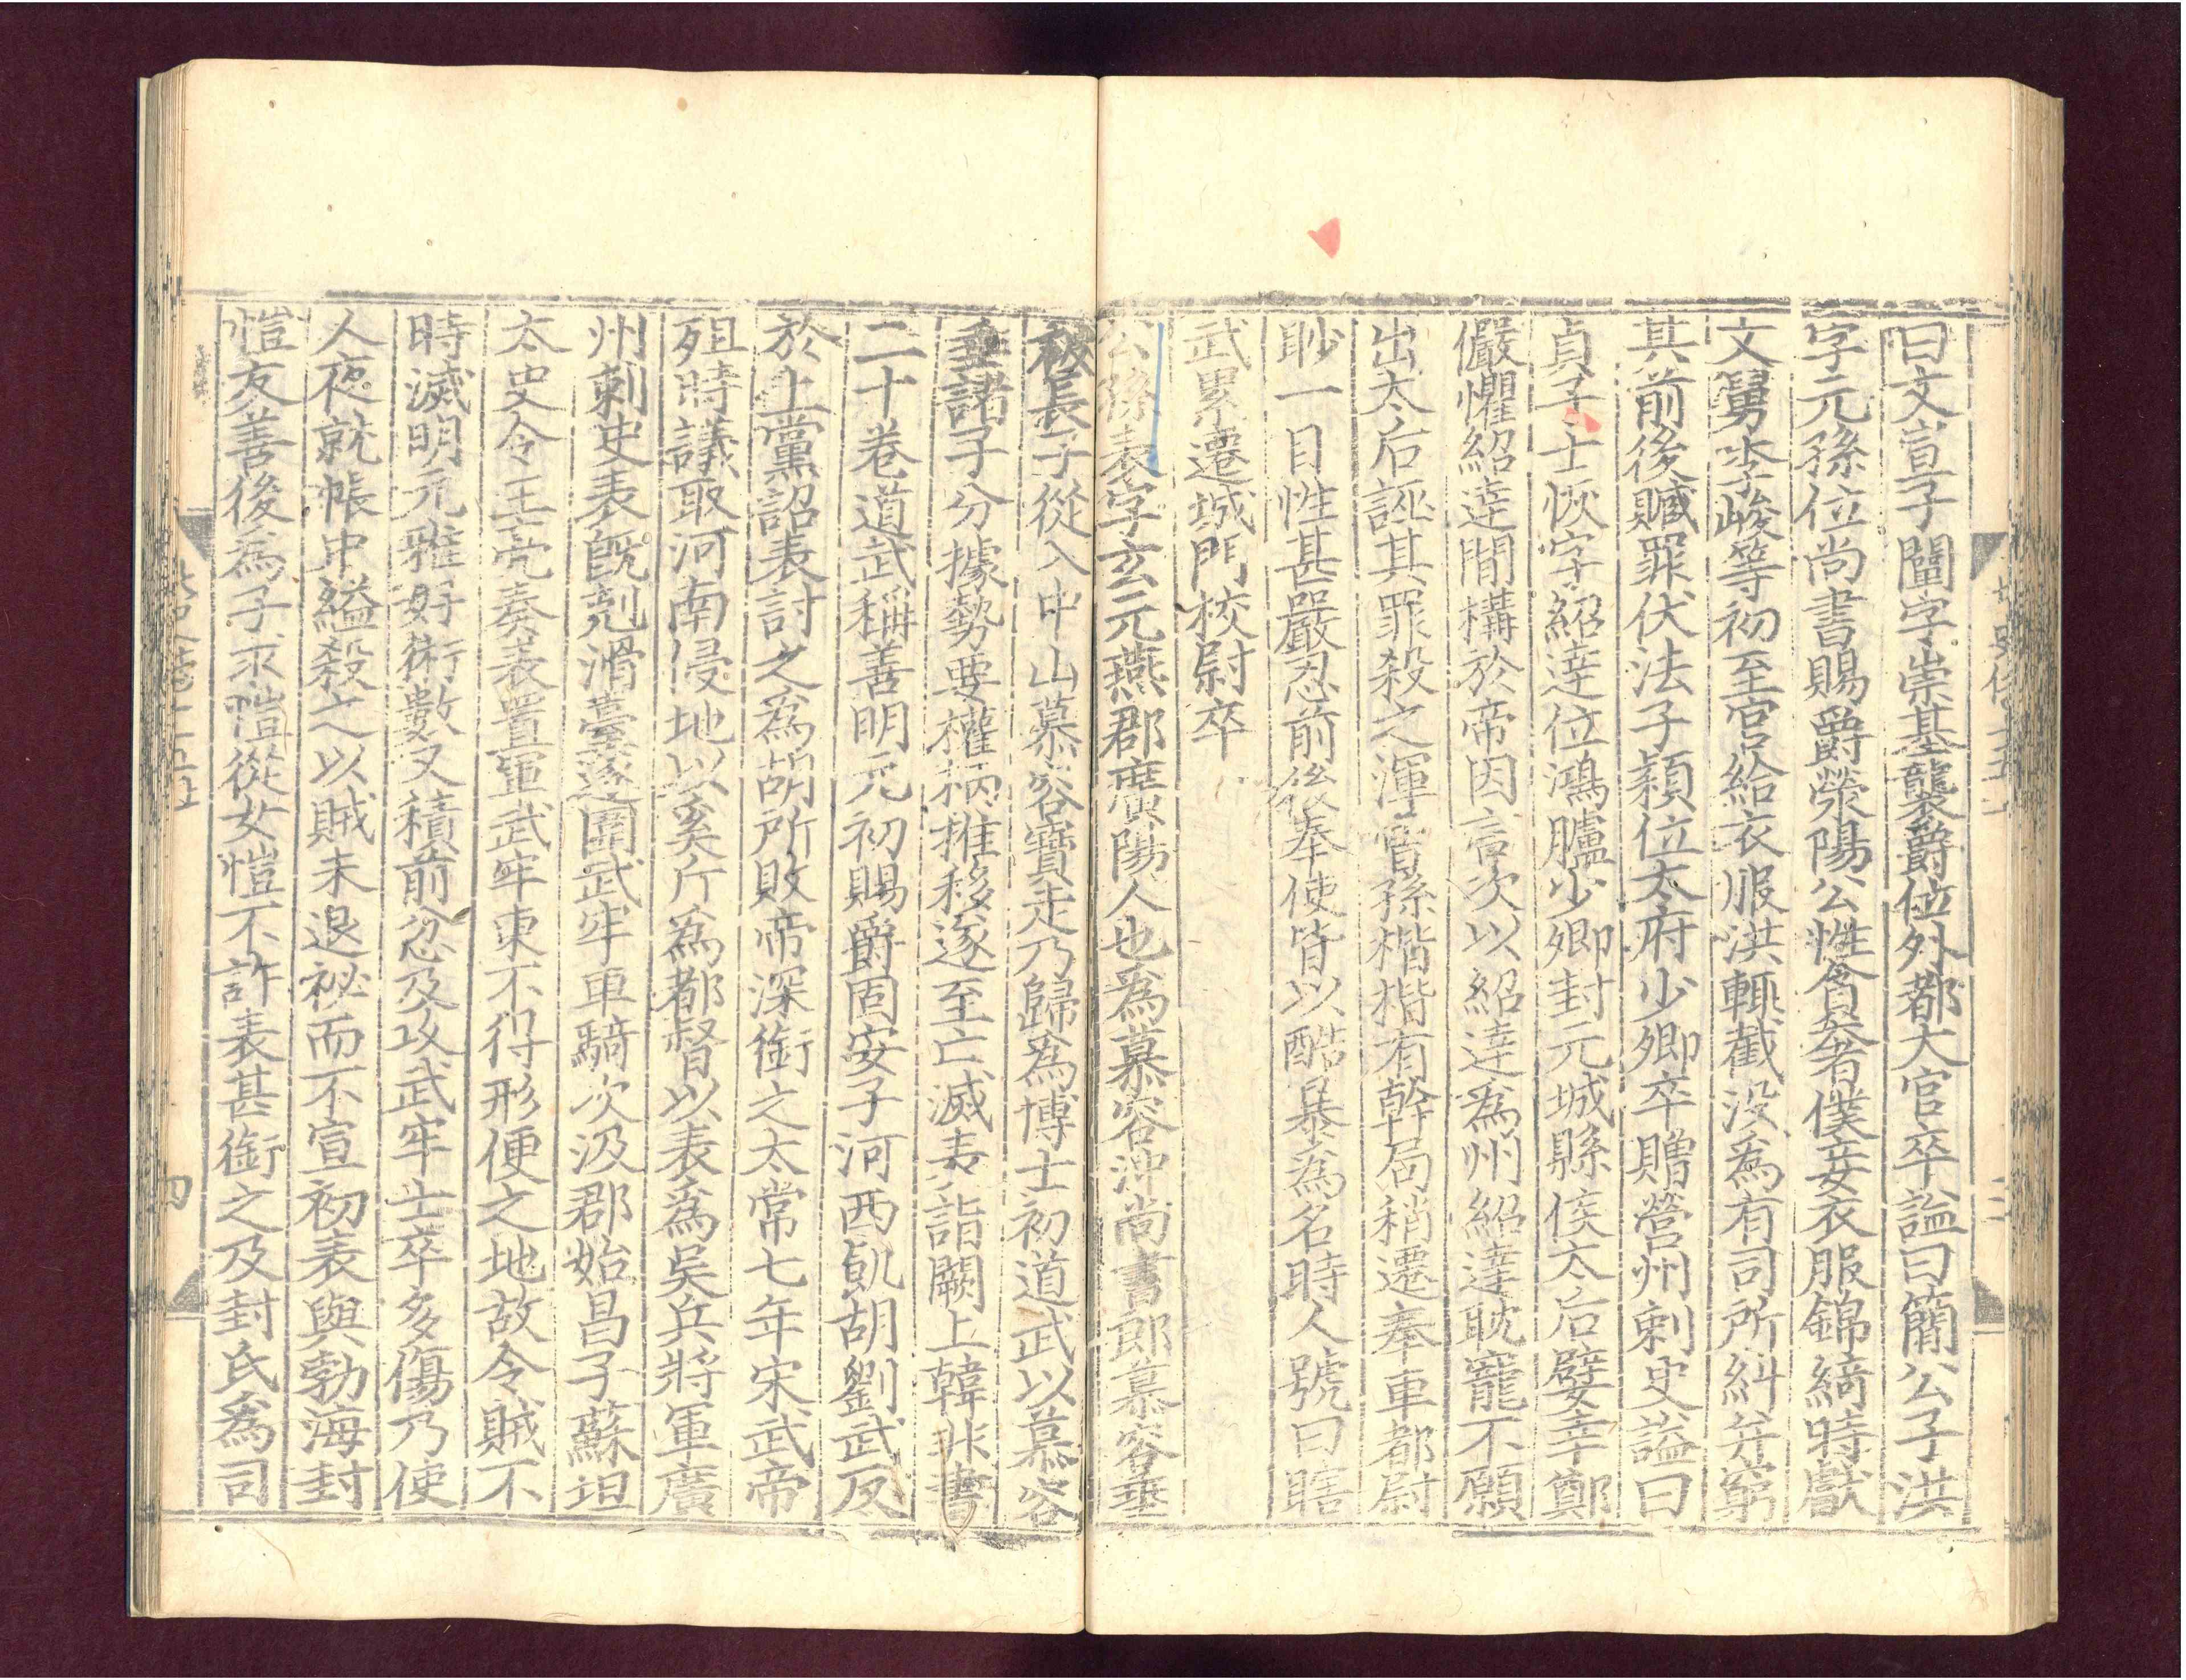 曰文宣子闡字崇基襲爵位外都大官卒謚曰簡公子洪
字元孫位尚書賜爵滎陽公性貪奢僕妾衣服錦綺時獻
文舅李峻等初至官給衣服洪輒截沒爲有司所糾并窮
其前後贓罪伏法子頴位太府少卿卒贈營州刺史謚曰
貞子士恢字紹達位鴻臚少卿封元城縣侯太后嬖幸鄭
儼懼紹達間構於帝因言次以紹達爲州紹達耽寵不願
出太后誣其罪殺之渾曾孫楷楷有幹局稍遷奉車都尉
眇一目性甚嚴忍前後奉使皆以酷暴爲名時人號曰瞎
武累遷城門校尉卒
公孫表字玄元燕郡廣陽人也爲慕容沖尚書郎慕容垂
破長子從入中山慕容寶走乃歸爲博士初道武以慕容
垂諸子分據勢要權柄推移遂至亡滅表詣闕上韓非書
二十卷道武稱善明元初賜爵固安子河西飢胡劉武反
於上黨詔表討之爲胡所敗帝深銜之太常七年宋武帝
殂時議取河南侵地以奚斤爲都督以表爲吳兵將軍廣
州刺史表旣剋滑臺遂圍武牢車騎次汲郡始昌子蘇坦
太史令王亮奏表置軍武牢東不得形便之地故令賊不
時滅明元雅好術數又積前忿及攻武牢士卒多傷乃使
人夜就帳中縊殺之以賊未退祕而不宣初表與勃海封
愷友善後爲子求愷從女愷不許表甚銜之及封氏爲司